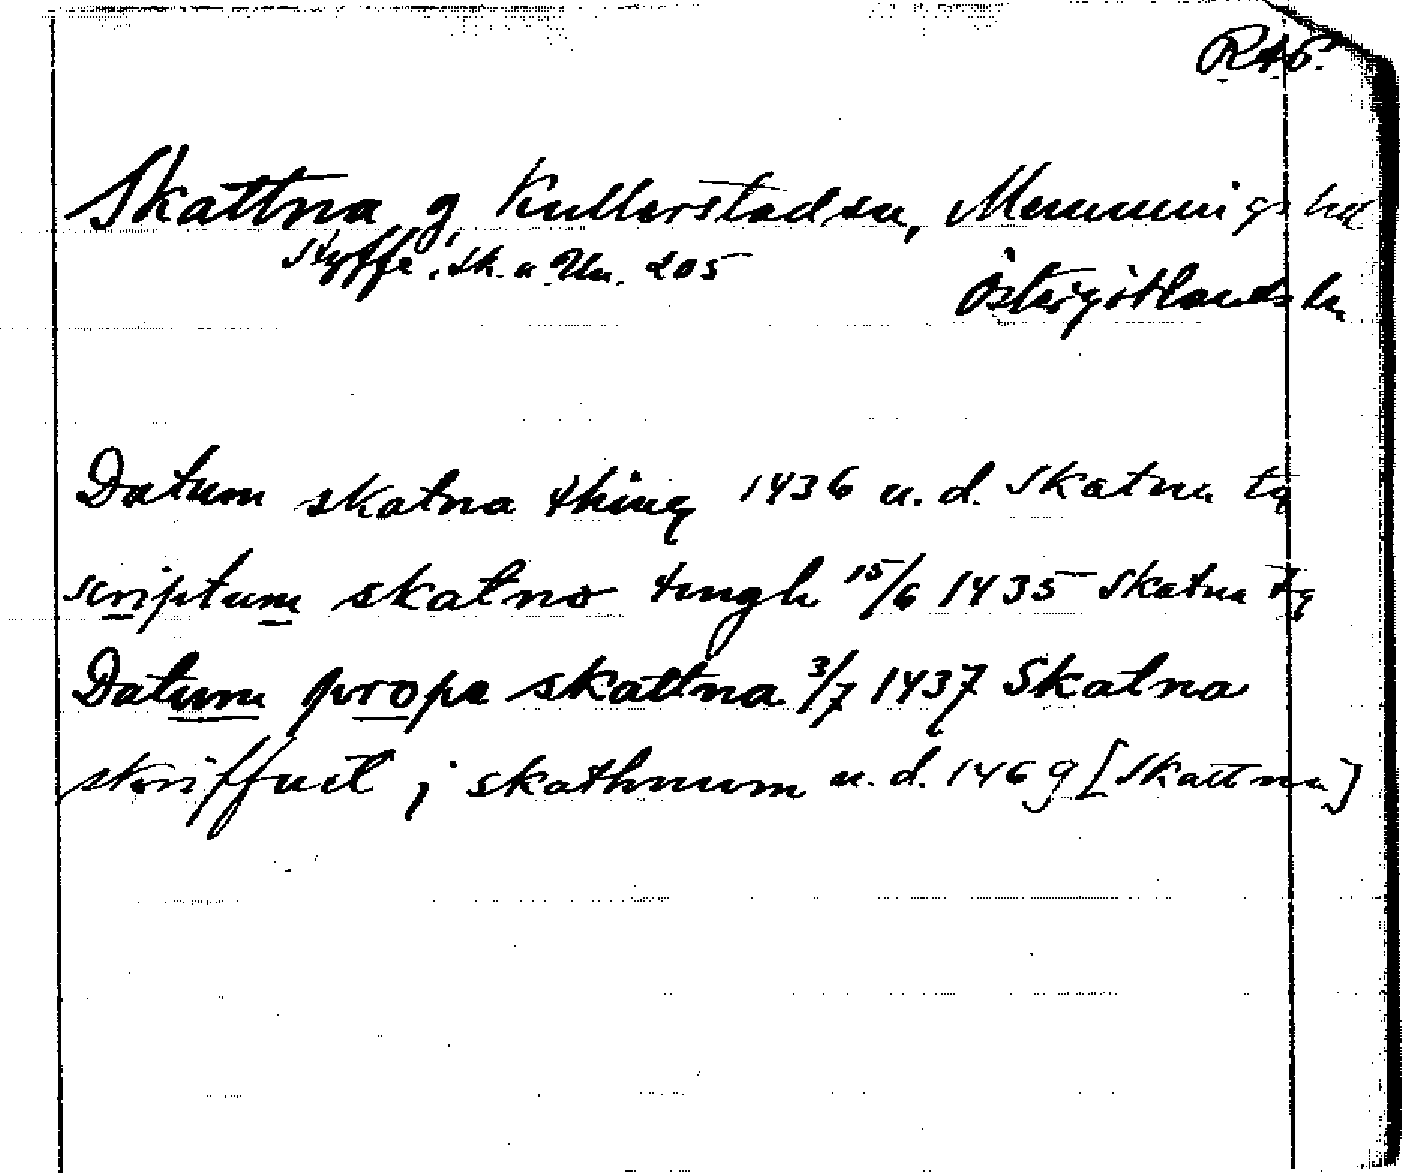 RAP.
Skattna g, Kullerstads sn, Memmings hd
Styffe, Sk. u. Un. 205
Östergötlands ln
Datum skatna thing 1436 u. d. Skatna tg
scriptum skatno tingh 15/6 1435 Skatna tg
Datum prope skattna 3/7 1437 Skatna
skriffuet j skathnum u. d. 1469 [Skattna]